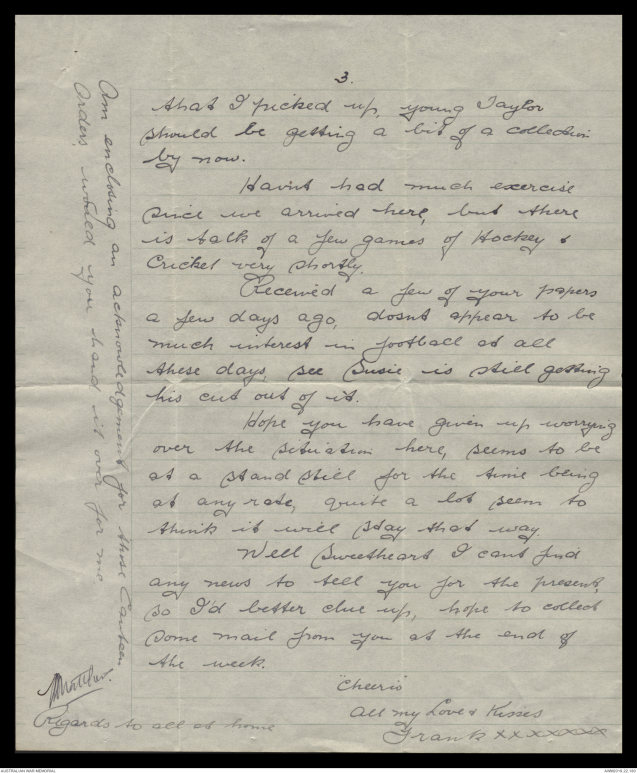 3.
that I picked up, young Taylor
should be getting a bit of a collection
by now.
Havnt had much exercise
since we arrived here, but there
is talk of a few games of Hockey &
Cricket very shortly.
Received a few of your papers
a few days ago, dosnt appear to be
much interest in football at all
these days, see Susie is still getting
his cut out of it.
Hope you have given up worrying
over the situation here, seems to be
at a stand still for the time being
at any rate, quite a lot seem to
think it will stay that way.
Well Sweetheart I cant find
any news to tell you for the present,
so I'd better clue up, hope to collect
some mail from you at the end of
the week.
"Cheerio"
All my Love & Kisses
Frank xxxxxxxx
Regards to all at home
Am enclosing an acknowledgement for those Canteen
Orders, would you hand it over for me
AUSTRALIAN WAR MEMORIAL